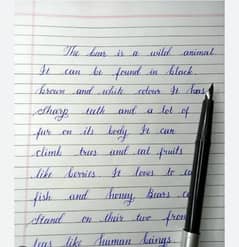 The bear is a wild animal
It can be found in black
brown and white colour It has
sharp teeth and a lot of
fur on its body It can
climb trees and eat fruits
like berries. It loves to
fish and honey, Bears
stand on their two
legs like human beings.